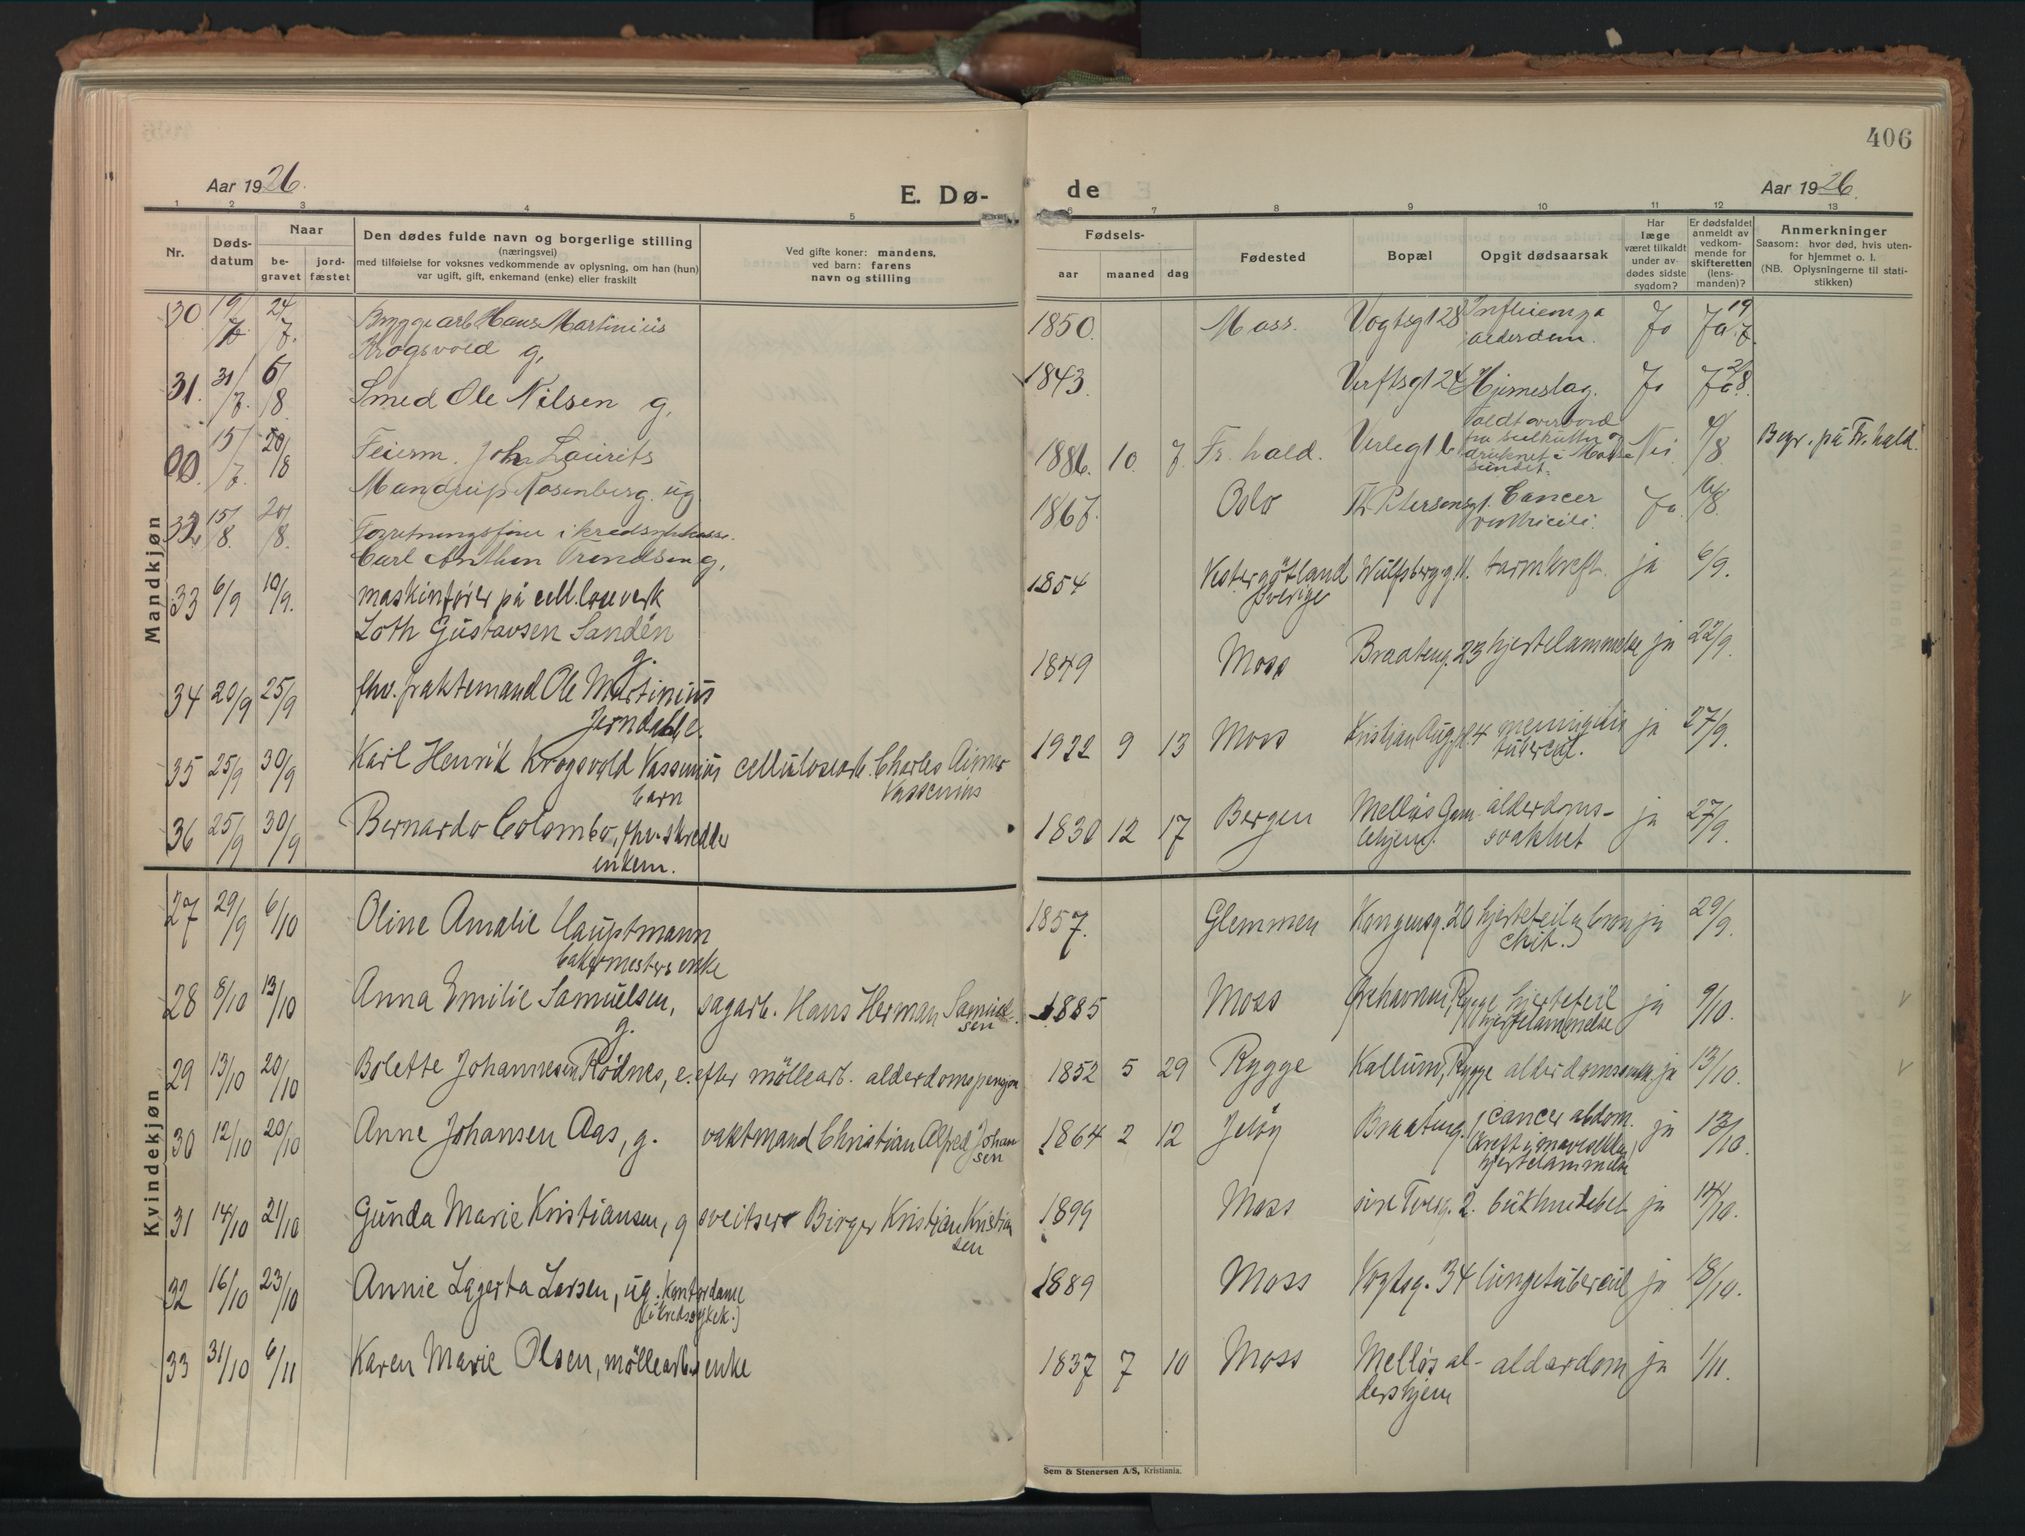 406
Aar 1926.
E. Dø-
de
Aar 1926.
1 2 3 4 5 6 7 8 9 10 11 12 13
Nr.
Døds-
datum
Naar
be-
gravet
jord-
fæstet
Den dødes fulde navn og borgerlige stilling
(næringsvei)
med tilføielse for voksnes vedkommende av oplysning, om han (hun)
var ugift, gift, enkemand (enke) eller fraskilt
Ved gifte koner: mandens,
ved barn: farens
navn og stilling
Fødsels-
aar maaned dag
Fødested
Bopæl
Opgit dødsaarsak
Har
læge
været tilkaldt
under av-
dødes sidste
sygdom?
Er dødsfaldet
anmeldt av
vedkom-
mende for
skifteretten
(lens-
manden)?
Anmerkninger
Saasom: hvor død, hvis uten-
for hjemmet o. l.
(NB. Oplysningerne til stati-
stikken)
Mandkjøn
30 19/7 24/7. Bryggearb Hans Martinius
Krogsvold g, 1850. Moss. Vogtsgt 28 Influenza
alderdom. Ja Ja 19/7.
31. 31/7. 6/8 Smed Ole Nilsen g, 1843. Verftsgt 24 Hjerneslag. Ja Ja 2/8.
00. 15/7. 20/8 Feierm. Joh Laurits
Mandrup Rosenberg. ug 1886. 10. 7. Fr. hald. Verlegt 6 Faldt overbord
fra seilkutter og
druknet i Mosse-
sundet. Nei 4/8. Begr. på Fr. hald.
32. 15/8. 20/8. Forretningsfører i kredssykekasse.
Carl Anthon Trondsen g, 1867. Oslo Th. Petersensgt. Cancer
ventriculi. Ja. 16/8.
33 6/9 10/9. maskinfører på cell.loseverk
Loth Gustavsen Sandén
g. 1854 Vestergötland
Sverige Wulfsbergg 11. tarmkreft. ja 6/9.
34 20/9 25/9 fhv. fraktemand Ole Martinius
Jerndahl e. 1849 Moss Braateng. 23 hjertelammelse ja 22/9.
35 25/9 30/9 Karl Henrik Krogsvold Vassenius
barn cellulosearb. Charles Aimar
Vassenius 1922 9 13 Moss Kristian Aug.gt. 4 meningitis
tubercul. ja 27/9.
36 25/9 30/9 Bernardo Colombo, fhv. skredder
enkem. 1830 12 17 Bergen Melløs Gam-
lehjem. alderdoms-
svakhet ja 27/9.
Kvindekjøn
27 29/9 6/10 Oline Amalie Hauptmann
bakermesters enke 1857. Glemmen Kongensg. 20 hjertefeil og bron
chit. ja 29/9.
28 8/10 13/10 Anna Emilie Samuelsen,
g. sagarb. Hans Herman Samuel-
sen 1885 Moss Ørehavnen, Rygge hjertefeil
hjertelammelse ja 9/10.
29 13/10 20/10 Bolette Johannesen Rødnes, e. efter møllearb. alderdomspensjon 1852 5 29 Rygge Kallum, Rygge alderdomssvak. ja 13/10.
30 12/10 20/10 Anne Johansen Aas, g. vaktmand Christian Alfred Johan
sen 1864 2 12 Jeløy Braateng. cancer abdom.
hjertelammelse ja 13/10.
31 14/10 21/10 Gunda Marie Kristiansen, g sveitser Birger Kristjan Kristian
sen 1899 Moss øvre Tverg. 2. bukhindebet ja 14/10.
32 16/10 23/10 Annie Lagerta Larsen, ug. Kontordame
(i Kredssykek.) 1889 Moss Vogtsg. 34 lungetubercul ja 18/10.
33 31/10 6/11 Karen Marie Olsen, møllearb.s enke 1837 7 10 Moss Melløs al-
dershjem alderdom ja 1/11.
Sem & Stenersen A/S, Kristiania.